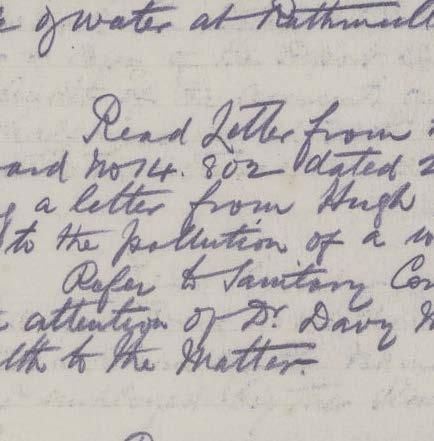 of water at Rathmull
Read Letter from
oard No 14.802 dated 2
g a letter from Hugh
to the pollution of a w
Refer to Sanitary Con
attention of Dr. Davy M
lth to the Matter.